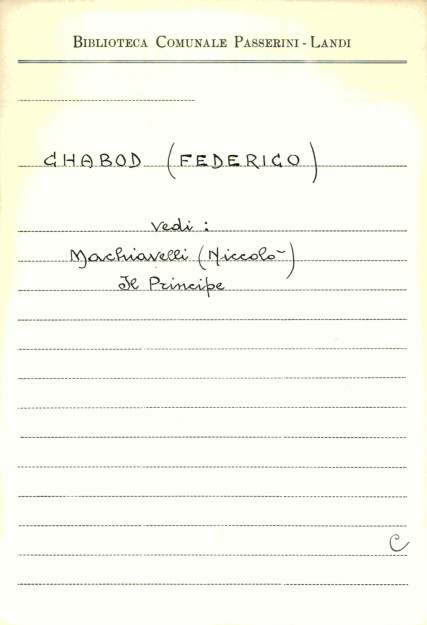 BIBLIOTECA COMUNALE PASSERINI - LANDI
CHABOD (FEDERICO)
vedi :
Machiavelli (Niccolò)
Il Principe
C